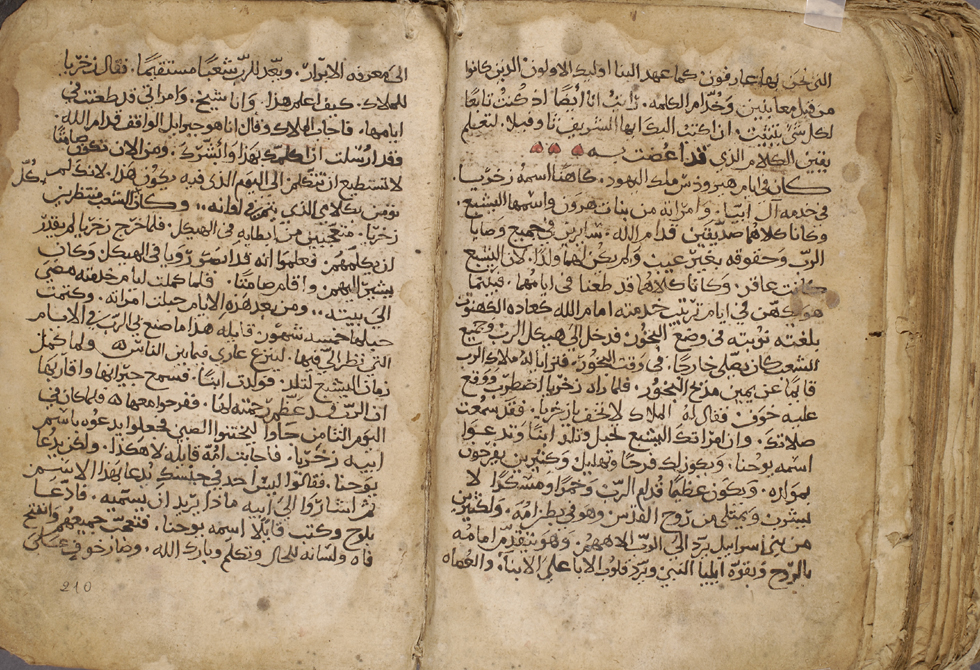 التى نحن بها عارفون كما عهد الينا اوليك الاولون الذين كانوا
من قبل معاينين وخدام الكلمه. رايت انا ايضًا اذ كنت تابعًا
لكل شى بتثبت. ان اكتب اليك ايها الشريف ثاوفيلا. لتعلم
يقين الكلام الذى قد اعضت به
كان فى ايام هيرودس ملك اليهود. كاهنًا اسمه زخريا.
فى خدمه آل ابيا. وامراته من بنات هرون واسمها اليشبع.
وكانا كلاهما صديقين قدام الله. سايرين فى جميع وصايا
الرب وحقوقه بغير عيب ولم يكن لهما ولدًا. لان اليشبع
كانت عاقر. وكانا كلاهما قد طعنا فى ايامهما. فبينما
هو يكهن فى ايام ترتيب خدمته امام الله كعاده الكهنوت
بلغته نوبته فى وضع البخور. فدخل الى هيكل الرب وجميع
الشعب كان يصلى خارجًا. فى وقت البخور. فترايا له ملاك الرب
قايمًا عن يمين مذبح البخور. فلما راه زخريا اضطرب ووقع
عليه خوف. فقال له الملاك لا تخف يا زخريا. فقد سمعت
صلاتك. وان امراتك اليشبع تحبل وتلد ابنًا وتدعوا
اسمه يوحنا. ويكون لك فرحًا وتهليل وكثيرين يفرحون
بمولده. ويكون عظيمًا قدام الرب وخمرًا ومسكرًا لا
يشرب ويمتلى من روح القدس وهو فى بطن امه. ولكثيرين
من بنى اسراييل يرد الى الرب الاههم. وهو يتقدم امامه
بالروح وبقوه ايليا النبى ويرد قلوب الابا على الابنا. والعصاه
الى معرفه الابرار. ويعد للرب شعبًا مستقيمًا. فقال زخريا
للملاك. كيف اعلم هذا. وانا شيخ. وامراتى قد طعنت فى
ايامها. فاجاب الملاك وقال انا هو جبرايل الواقف قدام الله.
فقد ارسلت اذ اكلمك بهذا وابشرك. ومن الان تكون صامتًا
لا تستطيع ان تتكلم الى اليوم الذى فيه يكون هذا. لانك لم
تومن بكلامى الذى يتم فى اوانه. وكان الشعب منتظرين كل
زخريا. متعجبين من ابطايه فى الهيكل. فلما خرج زخريا لم يقدر
ان يكلمهم. فعلموا انه قد ابصر رويا فى الهيكل وكان
يشير اليهم. واقام صامتًا. فلما كملت ايام خدمته مضى
الى بيته. ومن بعد هذه الايام حبلت امراته. وكتمت
حبلها خمسه شهور. قايله هذا ما صنع لى الرب فى الايام
التى نظر الى فيها. لينزع عارى فيما بين الناس ولما كمل
زمان اليشبع لتلد. فولدت ابنًا. فسمع جيرانها واقاربها
ان الرب قد عظم رحمته لها. ففرحوا معها فلما كان فى
اليوم الثامن جاوا ليختنوا الصبى فجعلوا يدعوه باسم
ابيه زخريا. فاجابت امه قايله لا هكذا. ولكن يدعا
يوحنا. فقالوا ليس احد فى جنسك يدعا بهذا الاسم
ثم اشاروا الى ابيه ماذا يريد ان يسميه. فادعا
بلوح وكتب قايلًا اسمه يوحنا. فتعجب جميعهم وانفتح
فاه ولسانه للحال وتكلم وبارك الله. وصار خوف على
210